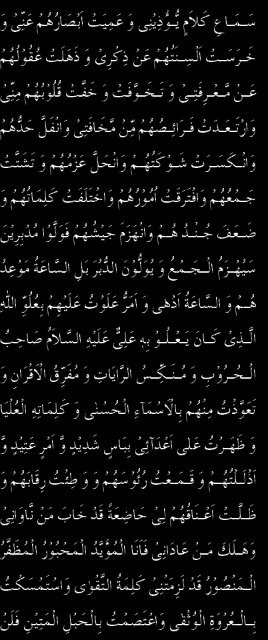 سَمَاعِ كَلَامٍ يُّؤْذِيْنِىْ وَ عَمِيَتْ اَبْصَارُهُمْ عَنِّىْ وَ
خَرِسَتْ اَلْسِنَتُهُمْ عَنْ ذِكْرِىْ وَ ذَهَلَتْ عُقُوْلُهُمْ
عَنْ مَّعْرِفَتِىْ وَ تَخَوَّفَتْ وَ خَفَّتْ قُلُوْبُهُمْ مِنِّىْ
وَارْتَعَدَتْ فَرَائِصُهُمْ مِّنْ مَّخَافَتِىْ وَانْفَلَّ حَدُّهُمْ
وَانْكَسَرَتْ شَوْكَتُهُمْ وَانْحَلَّ عَزْمُهُمْ وَ تَشَتَّتَ
جَمْعُهُمْ وَافْتَرَقَتْ اُمُوْرُهُمْ وَاخْتَلَفَتْ كَلِمَاتُهُمْ وَ
ضَعُفَ جُنْدُ هُمْ وَانْهَزَمَ جَيْشُهُمْ فَوَلَّوْا مُدْبِرِيْنَ
سَيُهْزَمُ الْجَمْعُ وَ يُوَلُّوْنَ الدُّبُرَ بَلِ السَّاعَةُ مَوْعِدُ
هُمْ وَ السَّاعَةُ اَدْهٰى وَ اَمَرُّ عَلَوْتُ عَلَيْهِمْ بِعُلُوِّ اللّٰهِ
الَّذِىْ كَانَ يَعْلُوْ بِهٖ عَلِىٌّ عَلَيْهِ السَّلَامُ صَاحِبُ
الْحُرُوْبِ وَ مُنَكِّسُ الرَّايَاتِ وَ مُفَرِّقُ الْاَقْرَانِ وَ
تَعَوَّذْتُ مِنْهُمْ بِالْاَسْمَآءِ الْحُسْنٰى وَ كَلِمَاتِهِ الْعُلْيَا
وَ ظَهَرْتُ عَلٰى اَعْدَآئِىْ بِبَاسٍ شَدِيْدٍ وَّ اَمْرٍ عَتِيْدٍ وَّ
اَذْلَلْتُهُمْ وَ قَمَعْتُ رُئُوْسَهُمْ وَ وَطِئْتُ رِقَابَهُمْ وَ
ظَلَّتْ اَعْنَاقُهُمْ لِىْ خَاضِعَةً قَدْ خَابَ مَنْ نَّاوَانِىْ
وَهَلَكَ مَنْ عَادَانِىْ فَاَنَا الْمُؤَيَّدُ الْمَحْبُوْرُ الْمُظَفَّرُ
الْمَنْصُوْرُ قَدْ لَزِمَتْنِىْ كَلِمَةُ التَّقْوٰى وَاسْتَمْسَكْتُ
بِالْعُرْوَةِ الْوُثْقٰى وَاعْتَصَمْتُ بِالْحَبْلِ الْمَتِيْنِ فَلَنْ